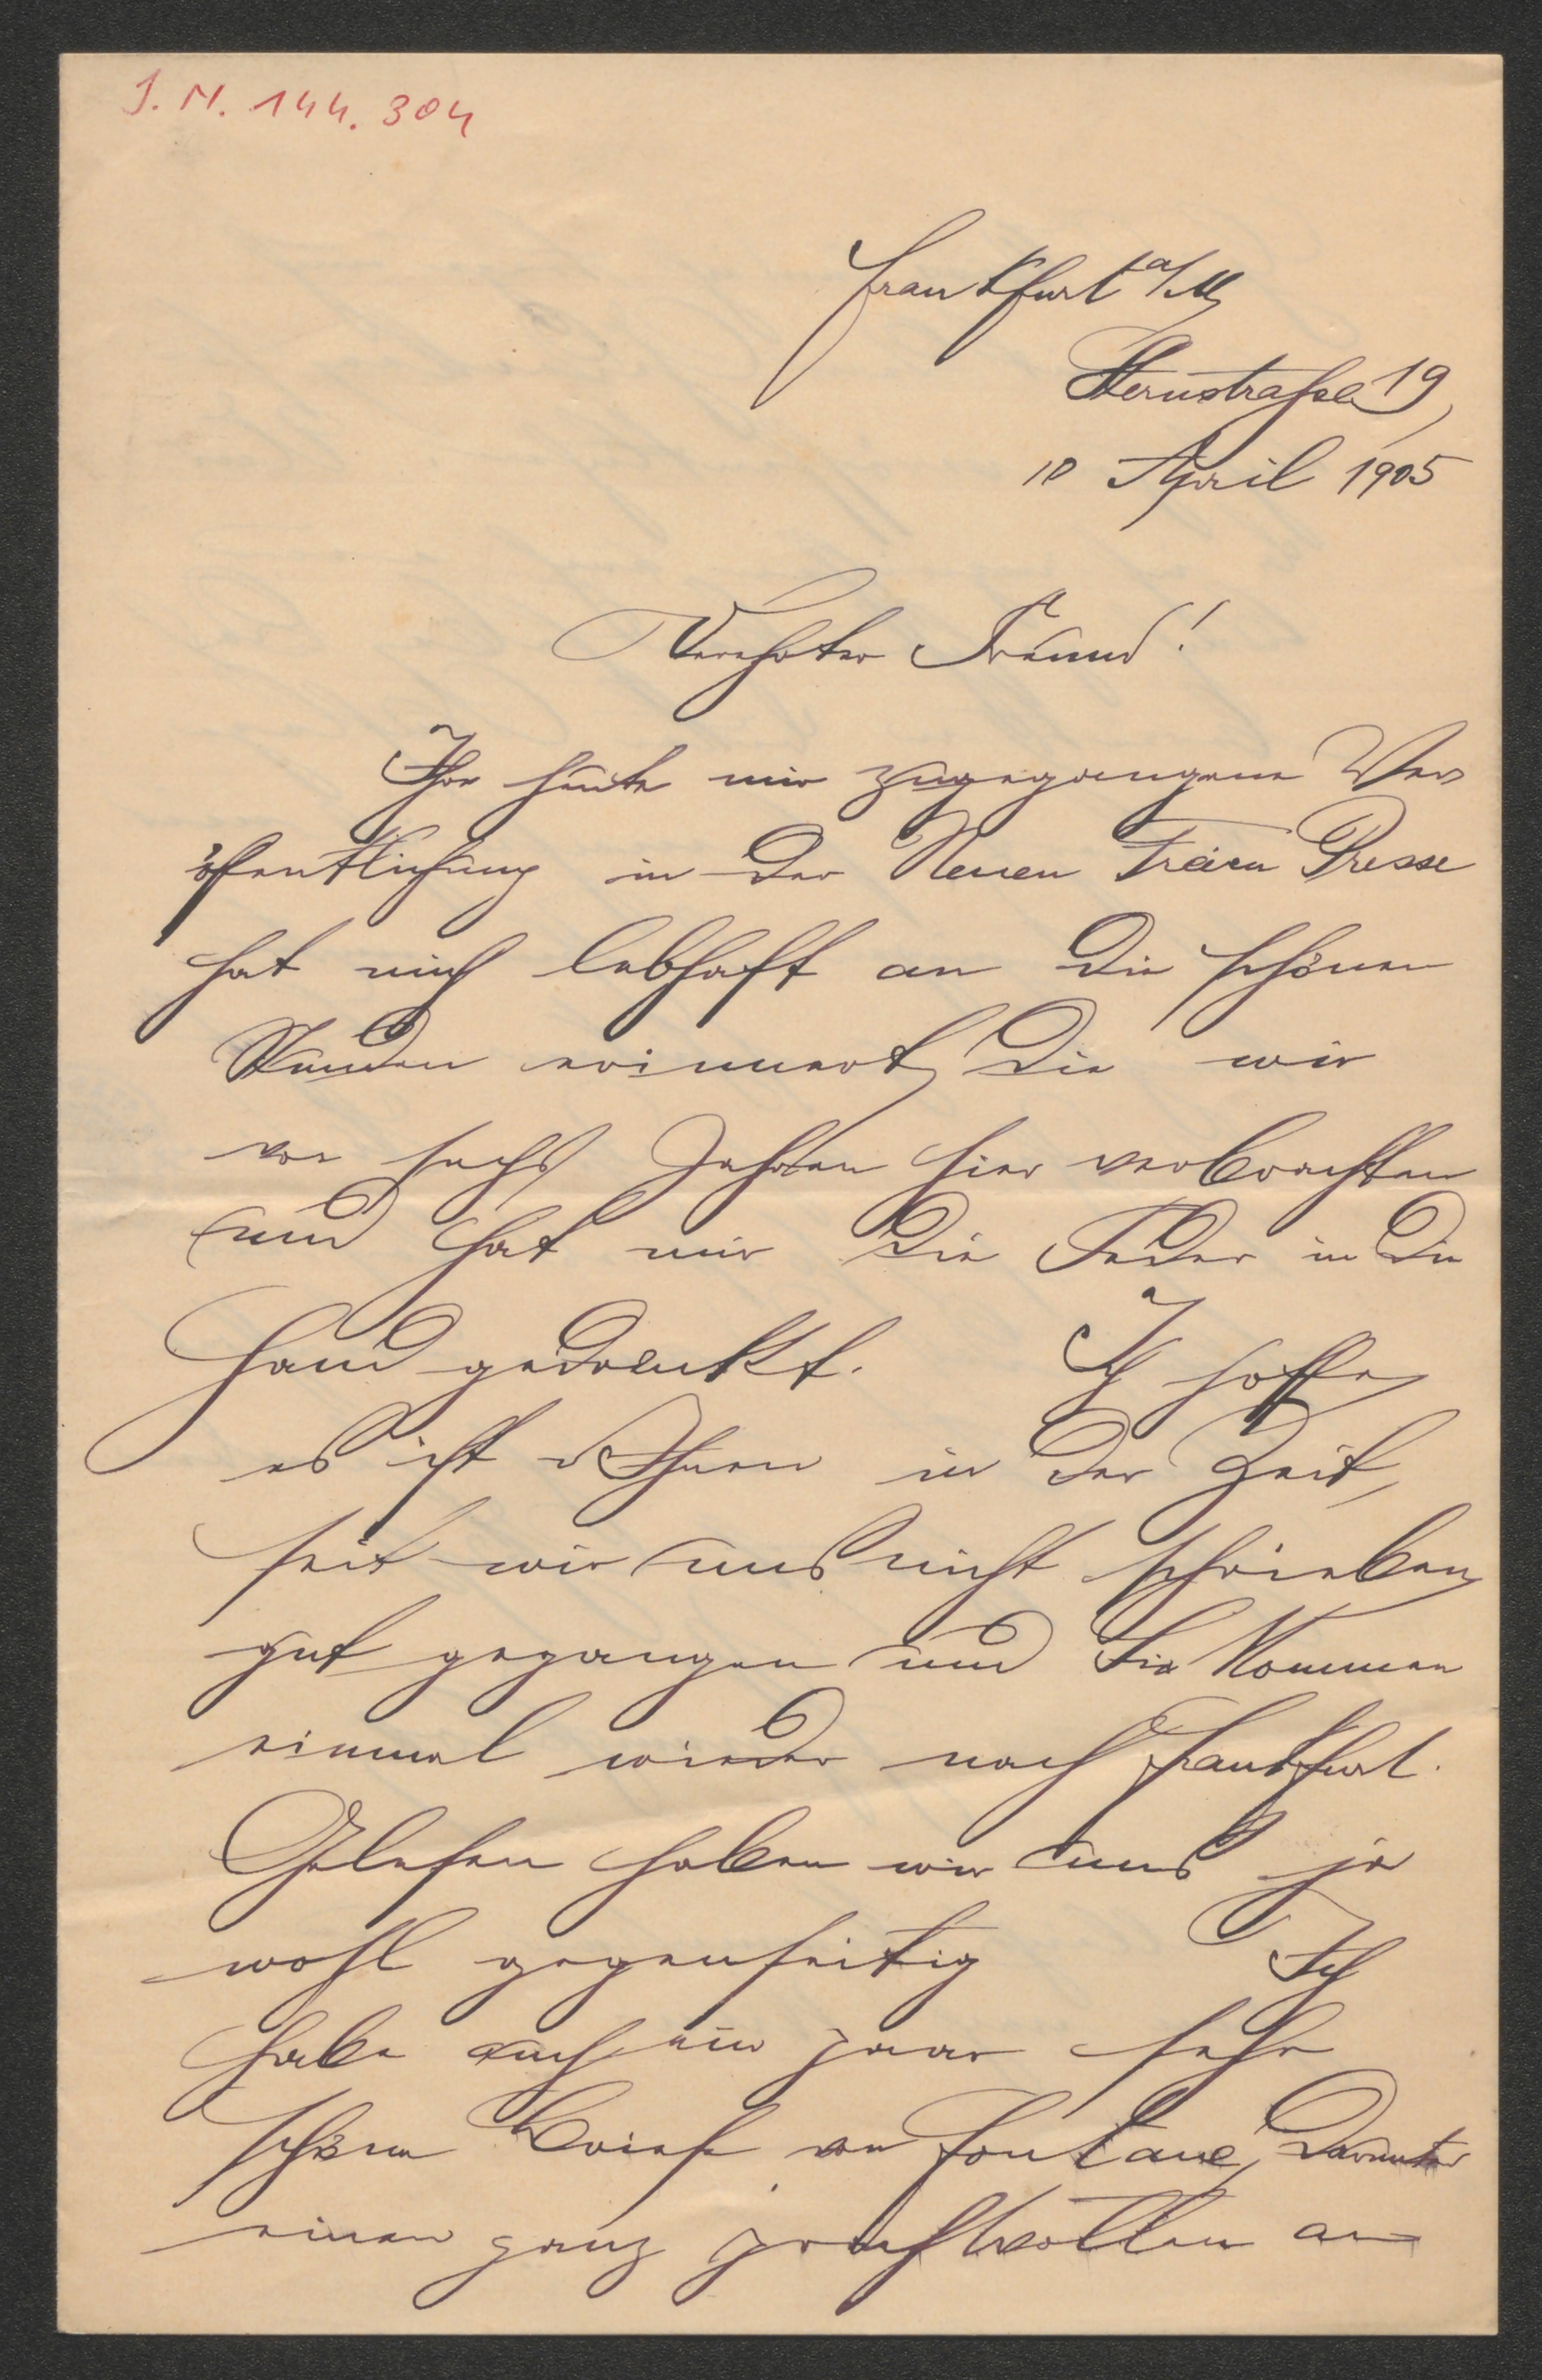 J. N. 144.304
Frankfurt a/M,
Sternstraße 19,
10 April 1905
Verehrter Freund!
Ihre heute mir zugegangene Ver-
öffentlichung in der Neuen Freien Presse
hat mich lebhaft an die schönen
Stunden erinnert, die wir
vor sechs Jahren hier verbrachten
und hat mir die Feder in die
Hand gedrückt. Ich hoffe,
es ist Ihnen in der Zeit,
seit wir uns nicht schrieben,
gut gegangen und Sie kommen
einmal wieder nach Frankfurt.
Gelesen haben wir uns ja
wohl gegenseitig Ich
habe auch ein paar sehr
schöne Briefe von Fontane, darunter
einen ganz prachtvollen an